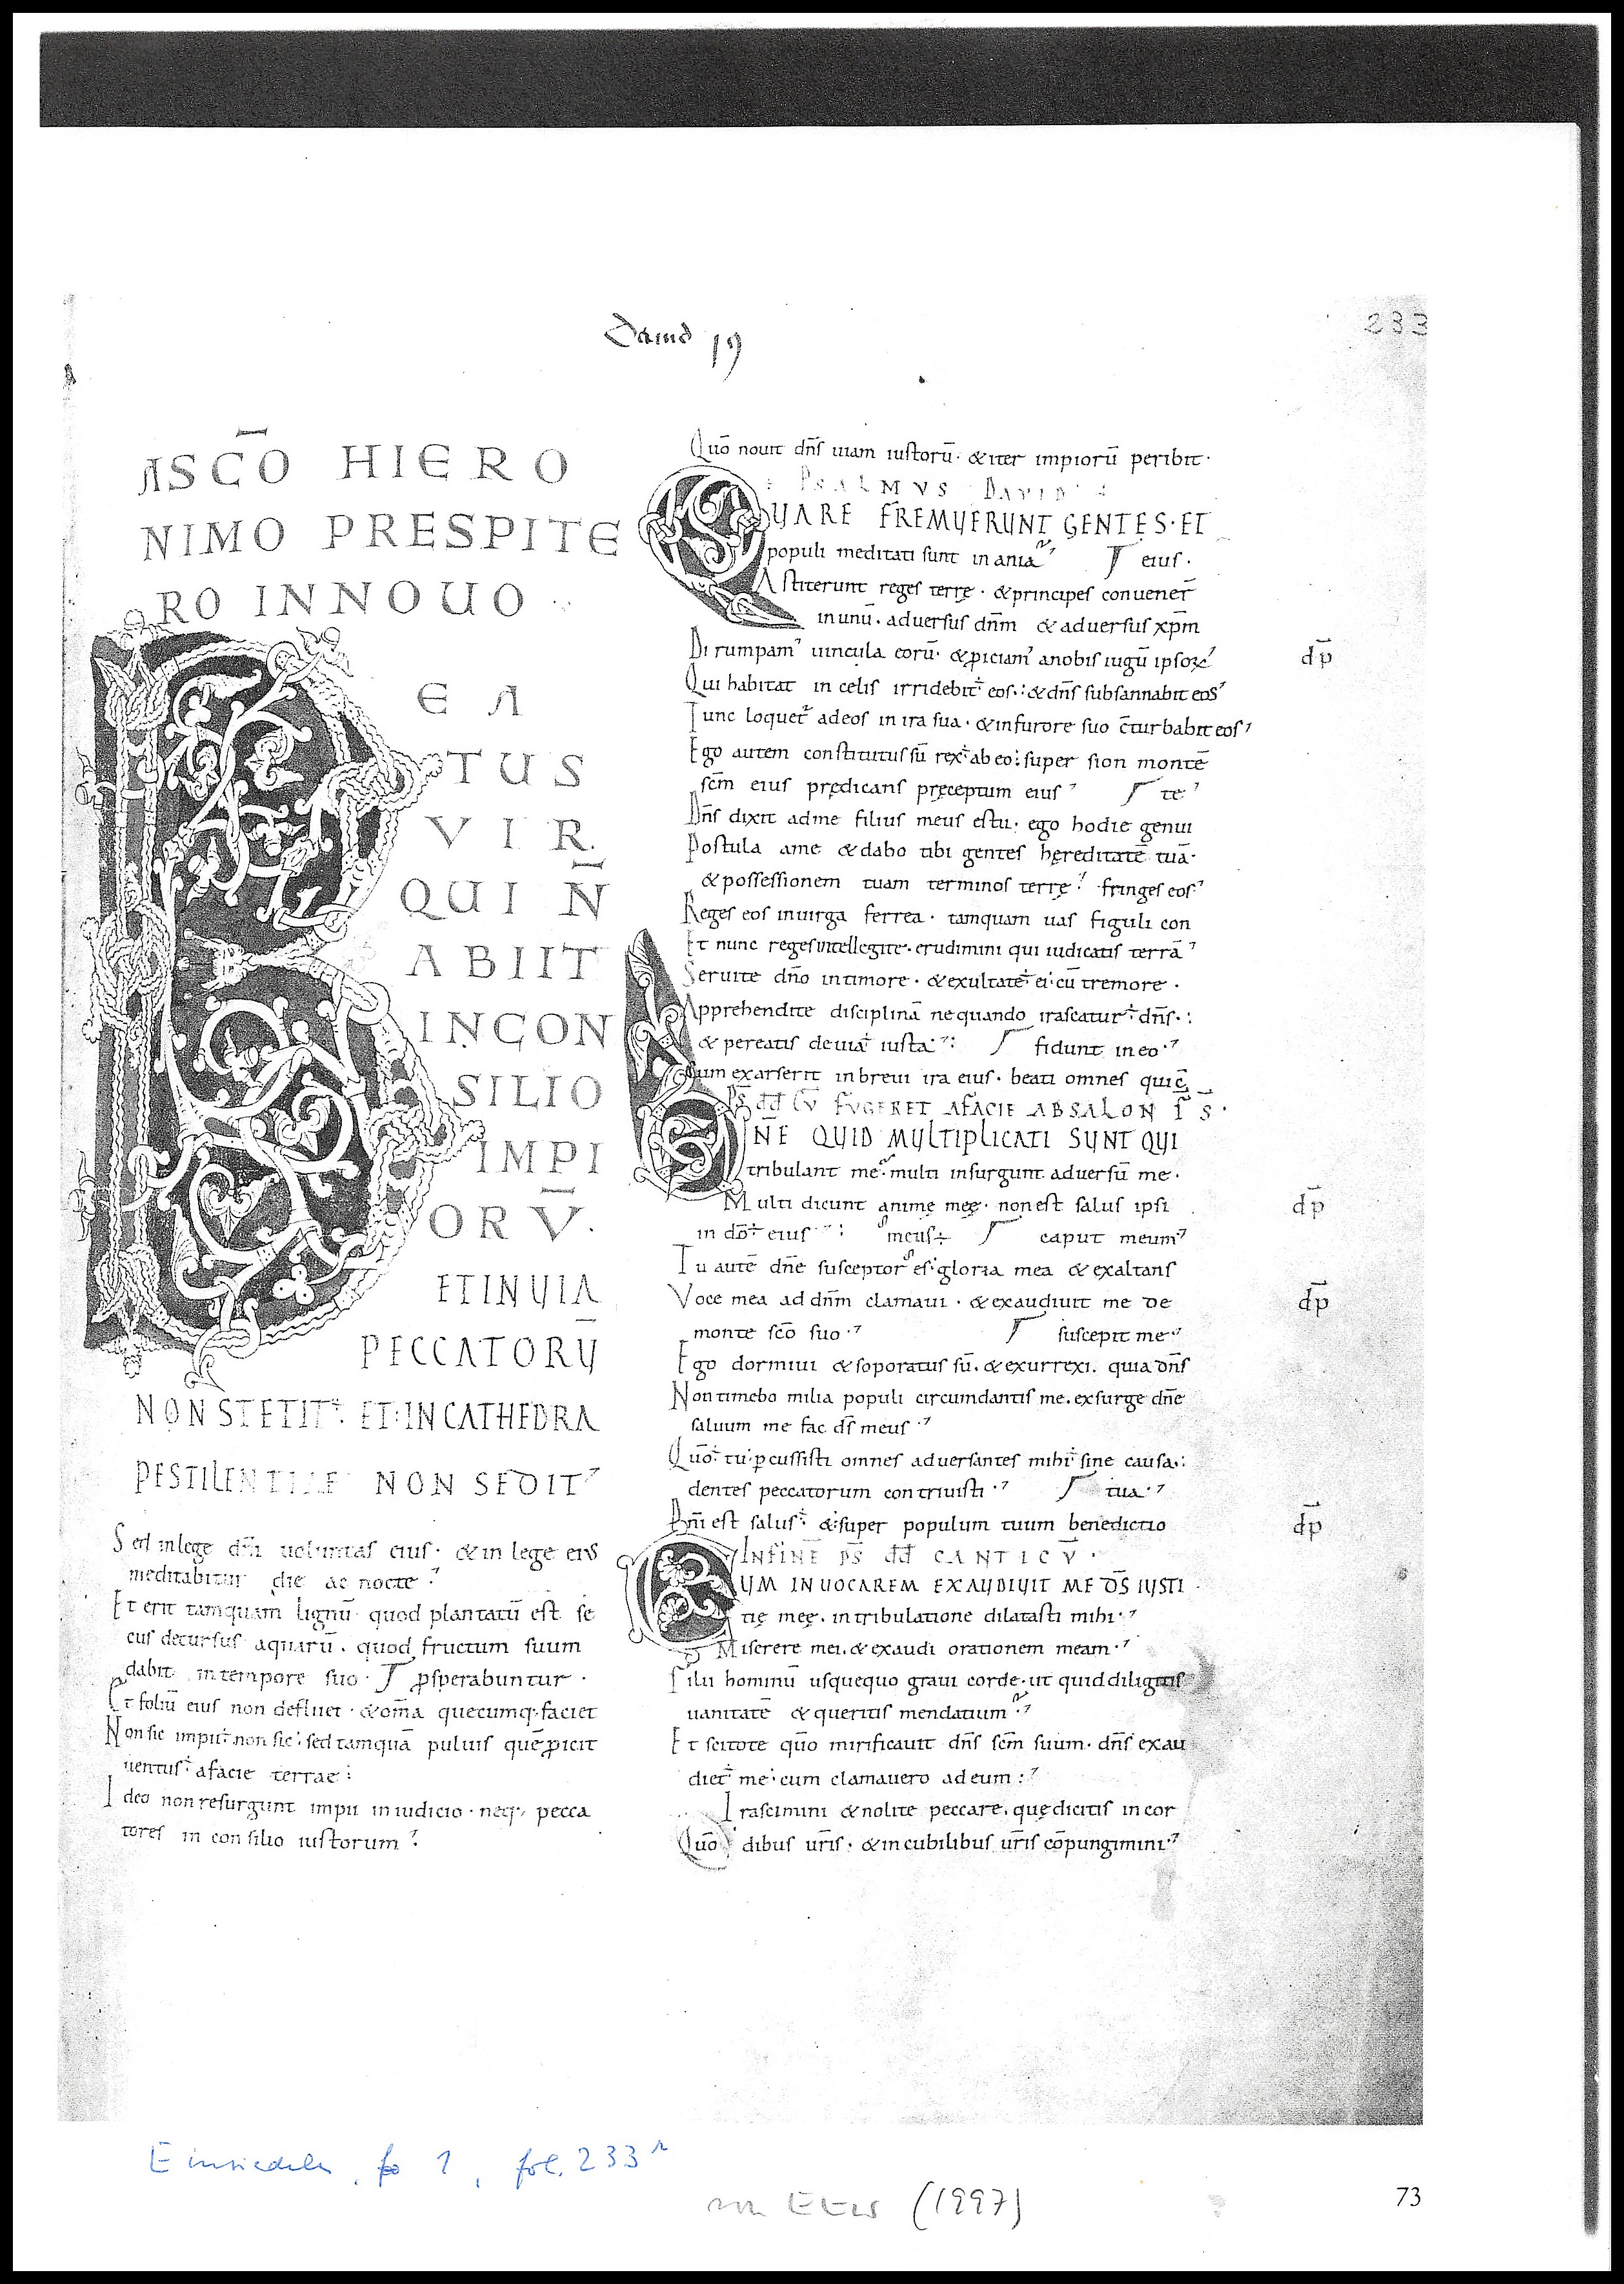 233
ASC̄O HIERO
NIMO PRESPITE
RO INNOUO
BEA
TUS
VIR
QUI N̄
ABIIT
INCON
SILIO
IMPI
ORV̄.
ETINVIA
PECCATORŪ
NON STETIT. ET IN CATHEDRA
PESTILENTIAE NON SEDIT
Sed inlege dñi uoluntas eius. & in lege eius
meditabitur die ac nocte
Et erit tamquam lignū quod plantatū est se
cus decursus aquarū. quod fructum suum
dabit intempore suo. ꝓsperabuntur.
Et foliū eius non defluet. & om̄a quecumq; faciet
Non sic impii non sic sed tamquā puluis quē ꝓicit
uentus afacie terrae
Ideo non resurgunt impii in iudicio. neq; pecca
tores in consilio iustorum
Quō nouit dñs uiam iustorū. & iter impiorū peribit.
PSALMVS DAVID
QUARE FREMUERUNT GENTES. ET
populi meditati sunt in ania eius.
Astiterunt reges terrę. & principes conuener̄
inunū. aduersus dñm & aduersus xp̄m
Dirumpam' uincula eorū. & ꝓiciam' anobis iugū ipsoꝝ dp̄
Qui habitat in celis irridebit eos. & dñs subsannabit eos
Tunc loquet' adeos in ira sua. & infurore suo c̄turbabit eos
Ego autem constitutus sū rex ab eo super sion montē
sc̄m eius prędicans pręceptum eius te
Dñs dixit adme filius meus estu. ego hodie genui
Postula ame & dabo tibi gentes hęreditatē tuā.
& possessionem tuam terminos terrę fringes eos
Reges eos inuirga ferrea. tamquam uas figuli con
Et nunc reges intellegite. erudimini qui iudicatis terrā
Seruite dño intimore. & exultate ei cū tremore.
Apprehendite disciplinā nequando irascatur dñs.
& pereatis deuia iusta fidunt ineo
Cum exarserit inbreui ira eius. beati omnes qui c̄
PS DD CV̄ FVGERET AFACIE ABSALON F̄. S.
DÑE QUID MULTIPLICATI SUNT QUI
tribulant me multi insurgunt aduersū me.
Multi dicunt animę męę. nonest salus ipsi dp̄
in dō eius meus caput meum
Tu autē dñe susceptor es gloria mea & exaltans
Voce mea ad dñm clamaui. & exaudiuit me de dp̄
monte sc̄o suo suscepit me
Ego dormiui & soporatus sū. & exurrexi. quia dñs
Non timebo milia populi circumdantis me. exsurge dñe
saluum me fac ds̄ meus
Quō tu ꝑcussisti omnes aduersantes mihi sine causa
dentes peccatorum contriuisti tua
Dñi est salus & super populum tuum benedictio dp̄
INFINĒ PS̄ DD CANTICV̄.
CUM INUOCAREM EXAUDIUIT ME DS̄ IUSTI
tię męę. intribulatione dilatasti mihi
Miserere mei. & exaudi orationem meam
Filii hominū usquequo graui corde. ut quid diligitis
uanitatē & queritis mendatium
Et scitote quō mirificauit dñs sc̄m suum. dñs exau
diet me cum clamauero adeum
Irascimini & nolite peccare. quę dicitis in cor
Quō dibus ur̄is. & incubilibus ur̄is cōpungimini
Einsiedeln, fol. 233r
(1997)
73